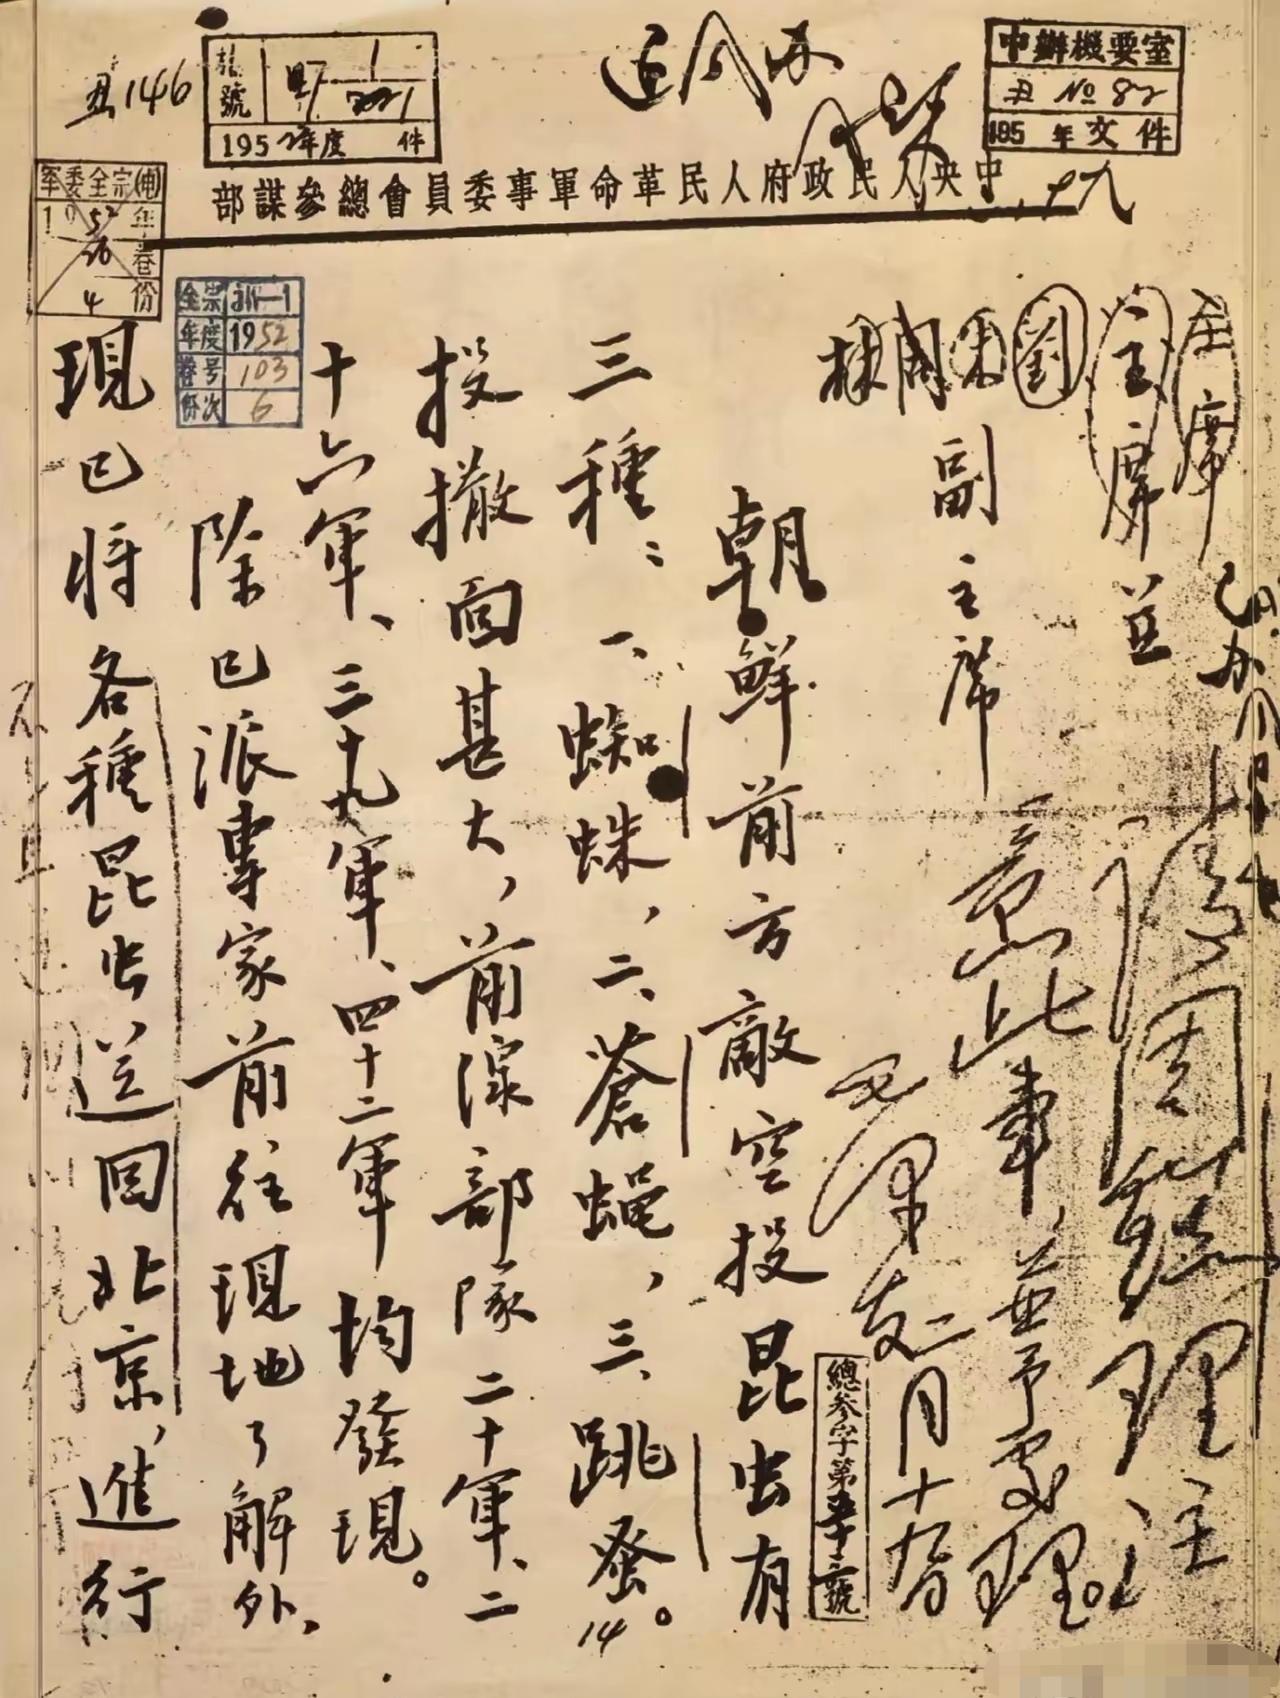 丑146
號
1952年度 件
中辦機要室
丑 № 82
195 年文件
中央人民政府人民革命軍事委員會總參謀部
十九
軍委全宗
1952年
26卷
4份
全宗 311—1
年度 1952
卷号 103
份次 6
主席
主席並
劉朱周林副主席
請周總理注
意此事,並予處理。
毛澤東 二月十九日
總參字第 號
朝鮮前方敵空投昆虫有
三種:一、蜘蛛,二、蒼蠅,三、跳蚤。
14
投撒面甚大,前線部隊二十軍、二
十六軍、三十九軍、四十二軍均發現。
除已派專家前往現地了解外,
現已將各種昆虫送回北京,進行